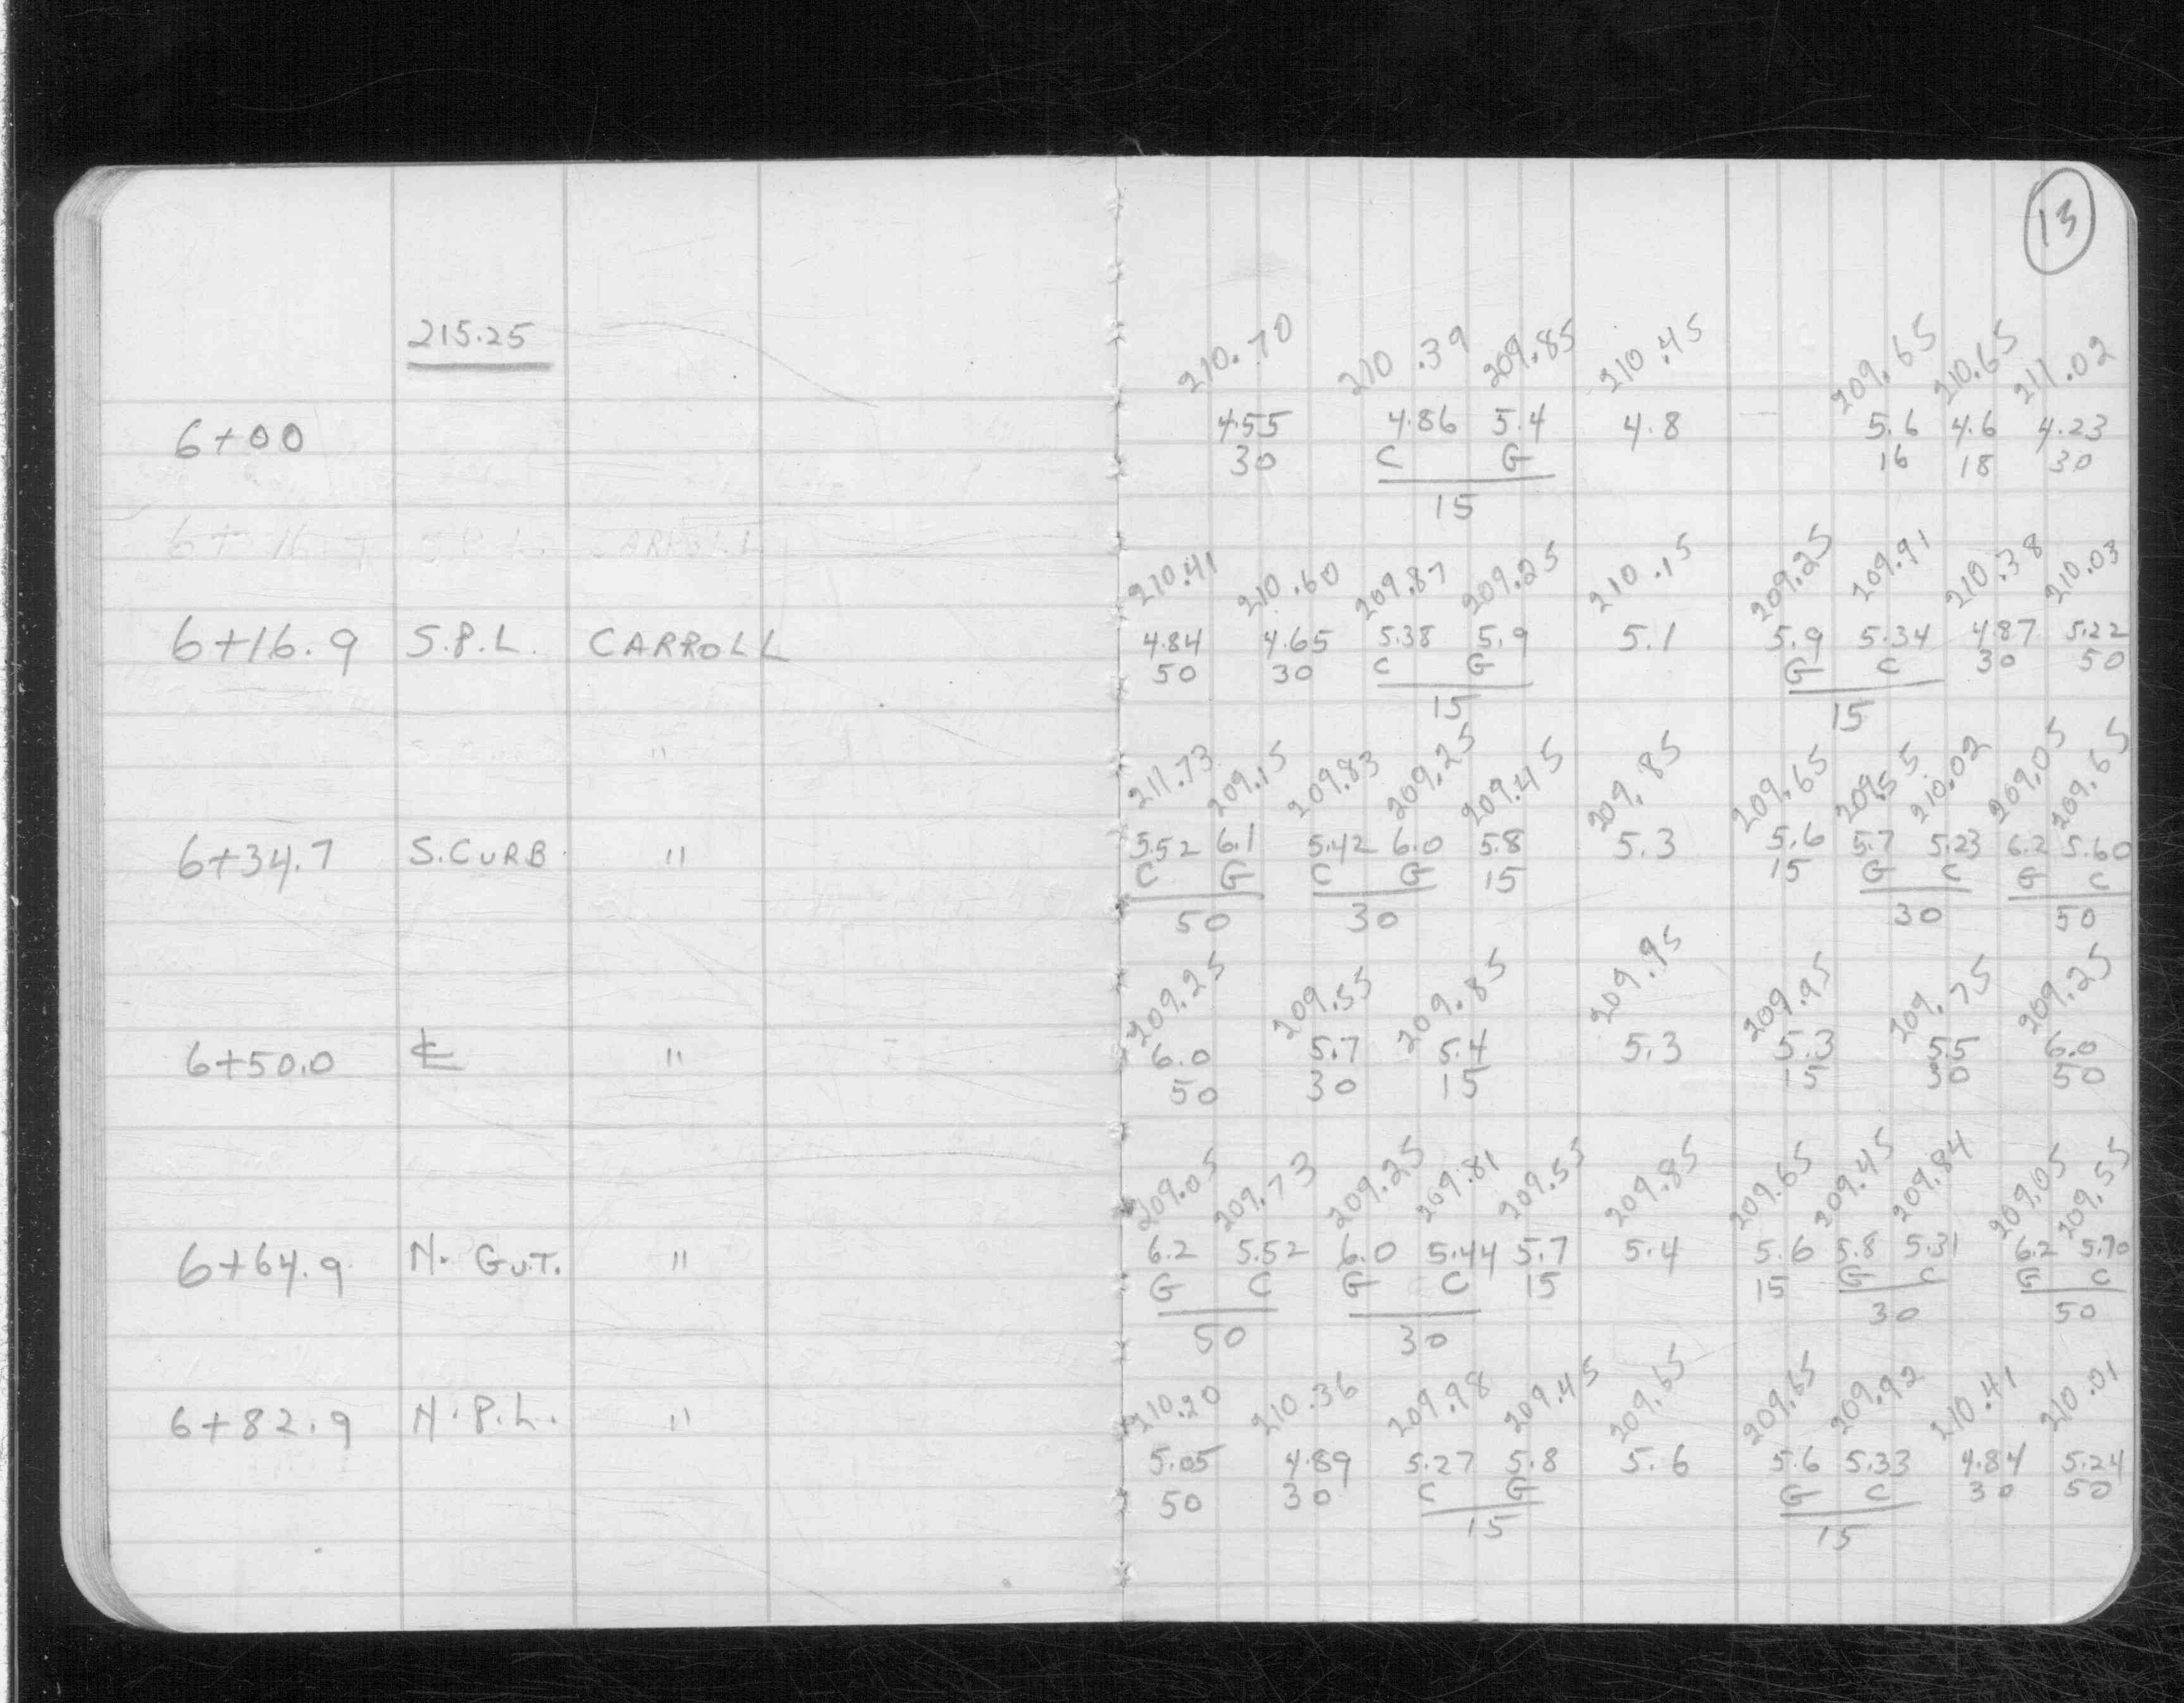 13
215.25
210.70 210.39 209.85 210.45 209.65 210.65 211.02
6+00 4.55 4.86 5.4 4.8 5.6 4.6 4.23
30 C G 16 18 30
15
6+16.9 S.P.L. CARROLL
210.41 210.60 209.87 209.25 210.15 209.25 209.91 210.38 210.03
6+16.9 S.P.L. CARROLL 4.84 4.65 5.38 5.9 5.1 5.9 5.34 4.87 5.22
50 30 C G G C 30 50
15 15
"
211.73 209.15 209.83 209.25 209.45 209.85 209.65 209.55 210.02 209.05 209.65
6+34.7 S.CURB. " 5.52 6.1 5.42 6.0 5.8 5.3 5.6 5.7 5.23 6.2 5.60
C G C G 15 15 G C G C
50 30 30 50
209.25 209.55 209.85 209.95 209.95 209.75 209.25
6+50.0 ℄ " 6.0 5.7 5.4 5.3 5.3 5.5 6.0
50 30 15 15 30 50
209.05 209.73 209.25 209.81 209.55 209.85 209.65 209.45 209.84 209.05 209.55
6+64.9 N. GUT. " 6.2 5.52 6.0 5.44 5.7 5.4 5.6 5.8 5.31 6.2 5.70
G C G C 15 15 G C G C
50 30 30 50
210.20 210.36 209.98 209.45 209.65 209.65 209.92 210.41 210.01
6+82.9 N.P.L. " 5.05 4.89 5.27 5.8 5.6 5.6 5.33 4.84 5.24
50 30 C G G C 30 50
15 15